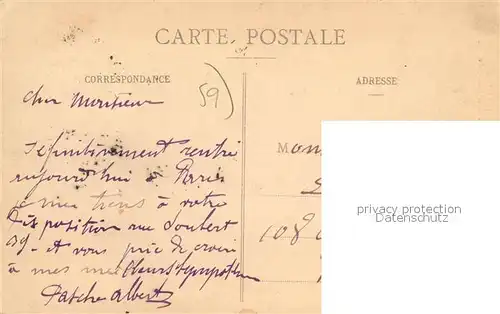 CARTE POSTALE
CORRESPONDANCE
ADRESSE
59)
Cher Monsieur
Définitivement rentré
aujourd'hui à Paris
je me tiens à votre
disposition rue
59 - et vous prie de croire
à mes meilleurs
Albert
M
108
privacy protection
Datenschutz